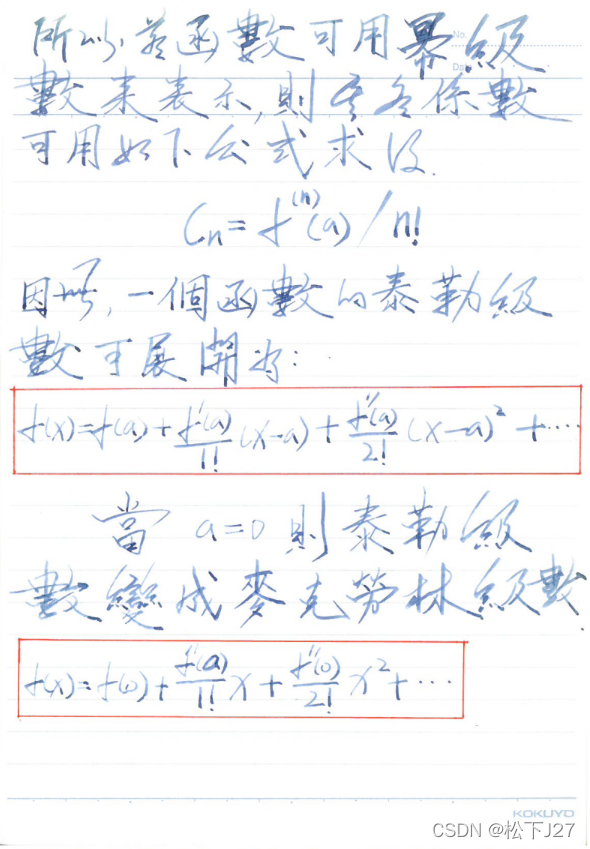 No.
Date
所以,若函數可用冪級
數來表示,則其各係數
可用如下公式求得.
Cn = f⁽ⁿ⁾(a) / n!
因此,一個函數的泰勒級
數可展開為:
f(x)=f(a)+f'(a)/1!(x-a)+f''(a)/2!(x-a)²+····
當 a=0 則泰勒級
數變成麥克勞林級數
f(x)=f(0)+f'(a)/1! x+f''(0)/2! x²+···
KOKUYO
CSDN @松下J27